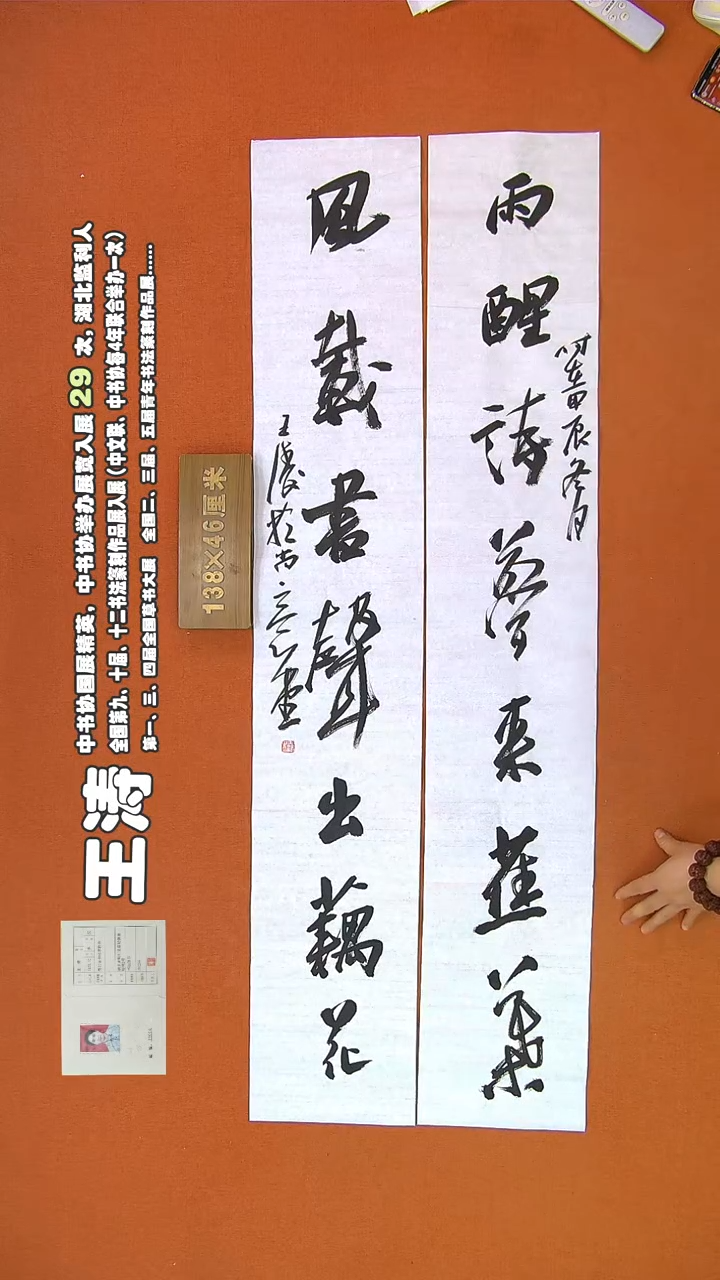 雨醒詩夢來蕉葉
時在甲辰冬月
風載書聲出藕花
王濤於尚意堂
138×46厘米
王涛
中书协国展精英，中书协举办展赛入展 29 次，湖北监利人
全国第九、十届、十二书法篆刻作品展入展（中文联、中书协每4年联合举办一次）
第一、三、四届全国草书大展 全国二、三届、五届青年书法篆刻作品展......